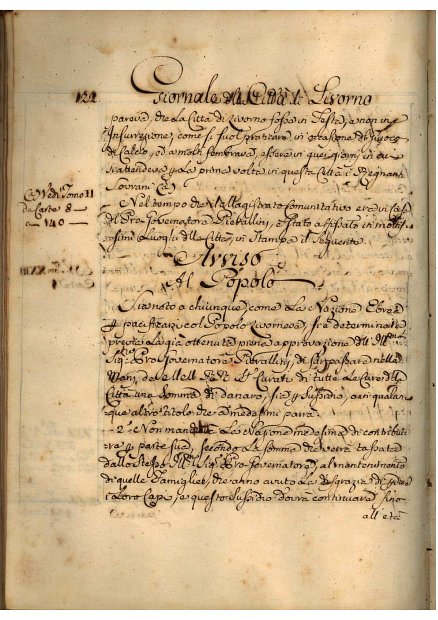 122
Giornale della Città di Livorno
pareva, che la Città di Livorno fosse in Festa, e non in
Insurrezione, come si suol praticare in occasione di Giuoco
di Calcio, ed a molti sembrava, essere in quei giorni in cui
s'attendeva la prima volta in questa Città i Regnanti
Sovrani
(a) Ved. Tomo 11
da Carte 8
a 140
Nel tempo che il Magistrato Comunitativo era in casa
del Pro Governatore Pierallini, è stato affissato in molti
simi Luoghi della Città, in Stampa il seguente
Avviso
Al Popolo
Sia noto a chiunque, come la Nazione Ebrea
p pacificarsi col Popolo Livornese, si è determinata
previa la già ottenuta piena approvazione di Ill.mo
Sig.re Pro Governatore Pierallini, di far passare nelle
Mani dei Curati di tutte le Cure della
Città una somma di danaro, sia p sussidio, o in qualun
que altro titolo che a medesimi parrà.
2° Non mancherà la Nazione medesima di contribui
re p parte sua, secondo la somma che verrà tassata
dallo stesso Ill.mo Sig. Pro Governatore, al mantenimento
di quelle Famiglie, che anno avuto la disgrazia di perdere
i Loro Capi, e questo sussidio dovrà continuare fino
all'età